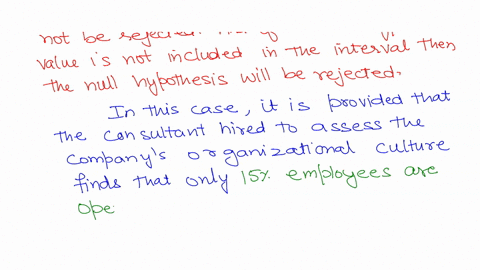 not be rejected.
value is not included in the interval then
the null hypothesis will be rejected.
In this case, it is provided that
the consultant hired to assess the
company's organizational culture
finds that only 15% employees are
ope